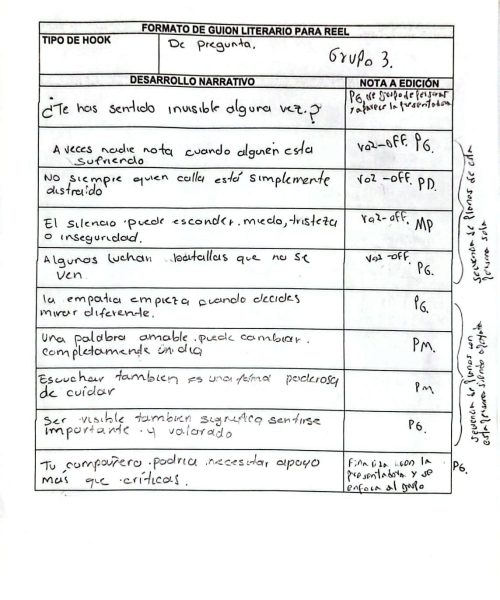 FORMATO DE GUION LITERARIO PARA REEL
TIPO DE HOOK
De pregunta.
Grupo 3.
DESARROLLO NARRATIVO
NOTA A EDICIÓN
¿Te has sentido invisible alguna vez?
PG, de grupo de personas
y aparece la presentadora
A veces nadie nota cuando alguien esta
sufriendo
voz-off. PG.
No siempre quien calla está simplemente
distraido
voz-off. PD.
El silencio puede esconder miedo, tristeza
o inseguridad.
voz-off. MP
Algunos luchan batallas que no se
ven
voz-off.
PG.
secuencia de planos de esta
persona sola
la empatia empieza cuando decides
mirar diferente.
PG.
Una palabra amable puede cambiar
completamente un dia
PM.
Escuchar tambien es una forma poderosa
de cuidar
PM
Ser visible tambien significa sentirse
importante y valorado
PG.
secuencia de planos con
esta persona siendo apoyada
Tu compañero podria necesitar apoyo
mas que criticas.
Finaliza con la
presentadora y se
enfoca al grupo
PG.